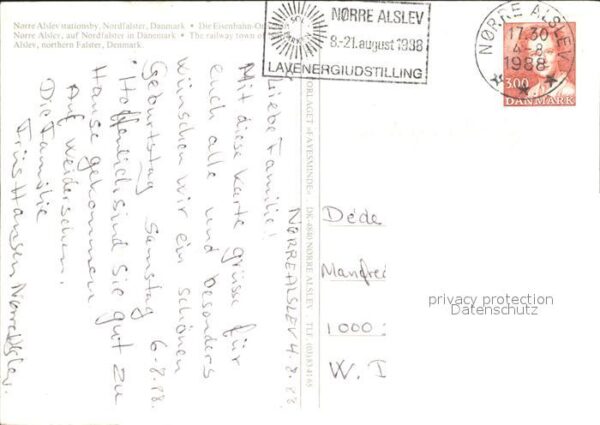 Nørre Alslev stationsby, Nordfalster, Danmark • Die Eisenbahn-Or
Nørre Alslev, auf Nordfalster in Dänemark • The railway town of
Alslev, northern Falster, Denmark
NØRRE ALSLEV
8.-21. august 1988
LAVENERGIUDSTILLING
NØRRE ALSLEV
17.30
4-8
1988
3.00
DANMARK
NØRREALSLEV 4.8.88
Liebe Familie!
Mit diese Karte grüsse für
euch alle und besonders
wünschen wir ein schönen
Geburtstag Samstag 6-8.88.
Hoffenlich sind Sie gut zu
Hause gekommen
Auf Weiderschen.
Die Familie
Friis Hansen Nørre Alslev.
DK-4840 NØRRE ALSLEV
Dede
Manfred
1000
W. I
privacy protection
Datenschutz